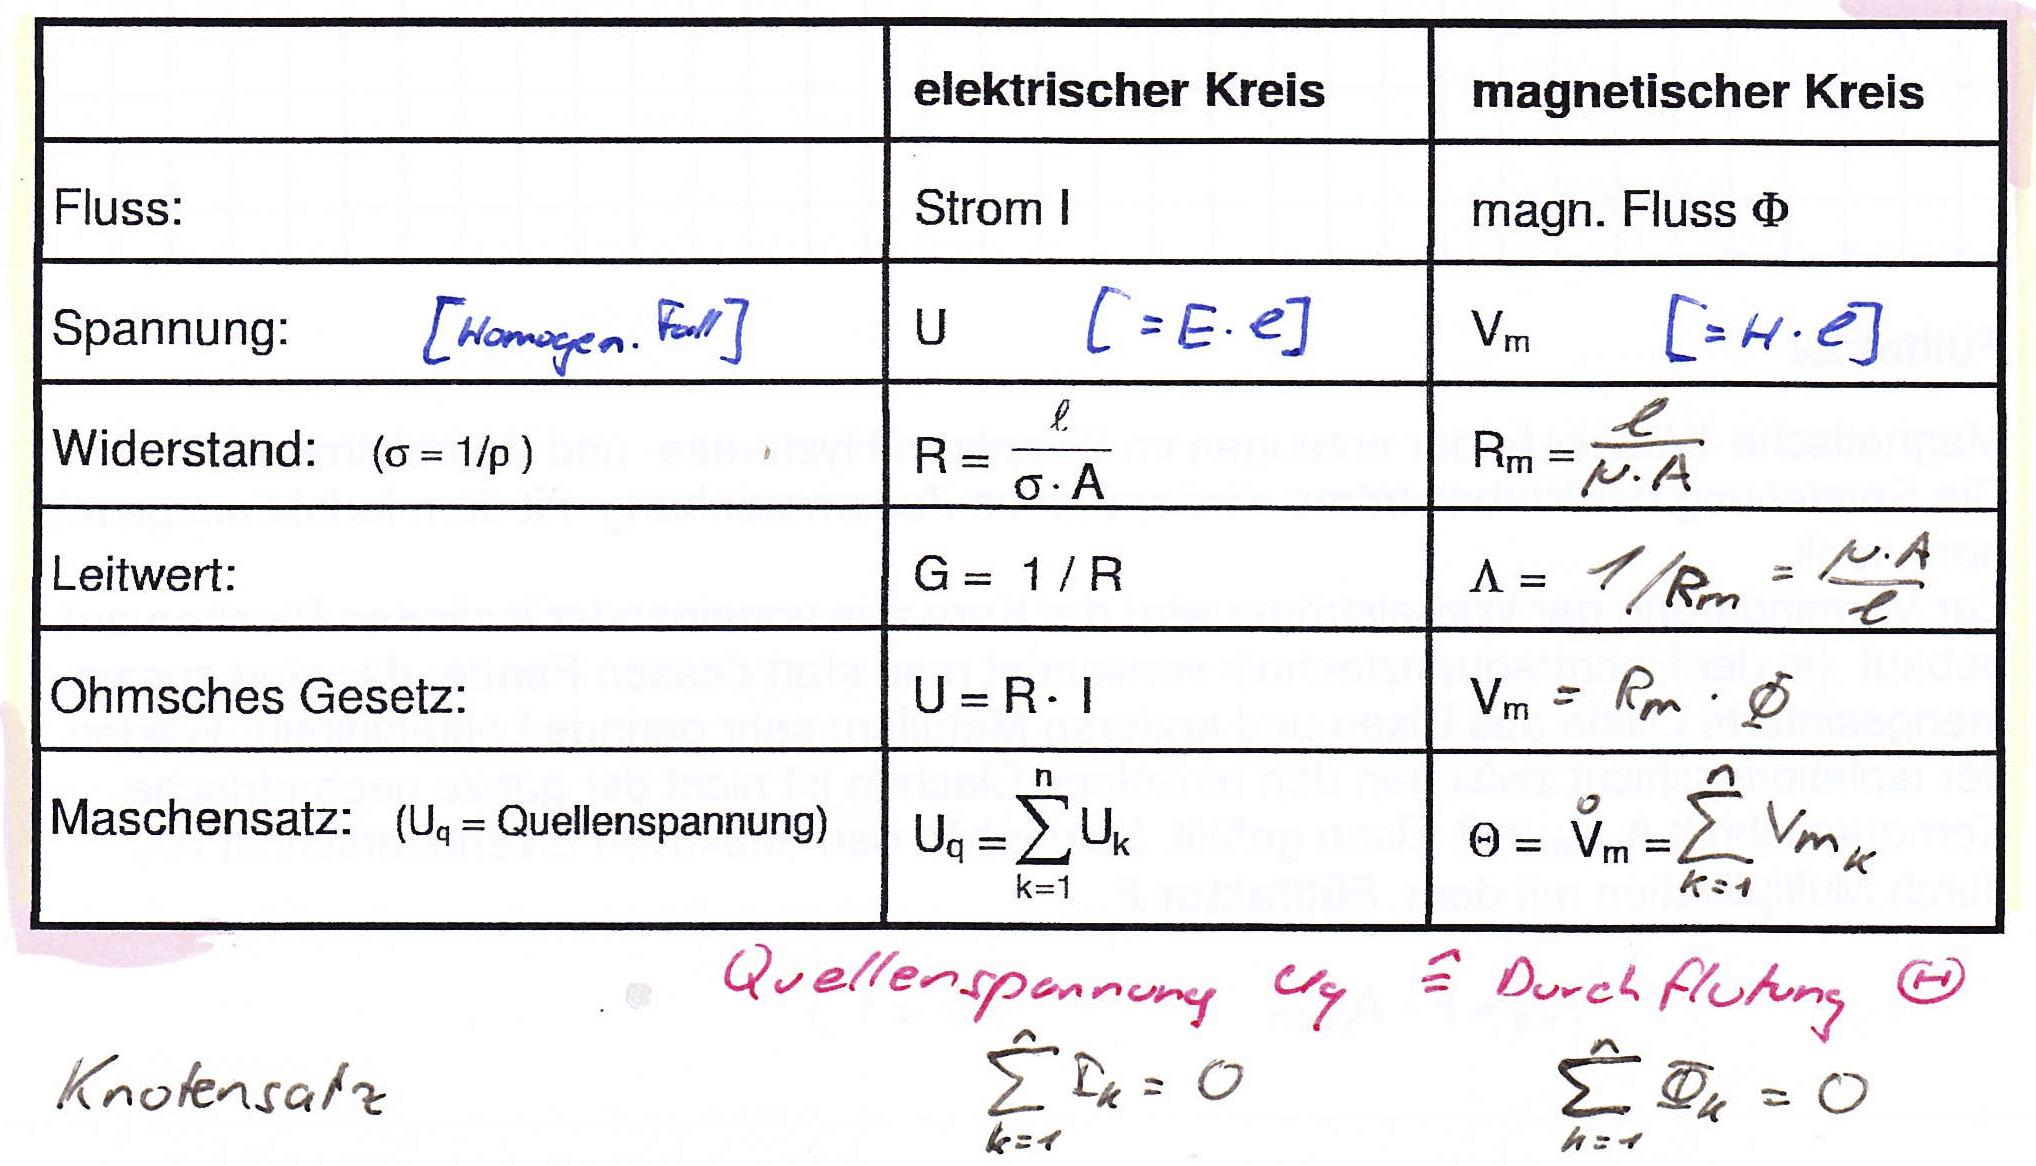 elektrischer Kreis magnetischer Kreis
Fluss: Strom I magn. Fluss Φ
Spannung: [Homogen. Fall] U [= E · ℓ] Vm [= H · ℓ]
Widerstand: (σ = 1/ρ) R = ℓ / σ · A Rm = ℓ / μ · A
Leitwert: G = 1 / R Λ = 1/Rm = μ · A / ℓ
Ohmsches Gesetz: U = R · I Vm = Rm · Φ
Maschensatz: (Uq = Quellenspannung) Uq = n ∑ k=1 Uk Θ = V̊m = n ∑ k=1 Vmk
Quellenspannung Uq ≙ Durchflutung Θ
Knotensatz n ∑ k=1 Ik = 0 n ∑ k=1 Φk = 0